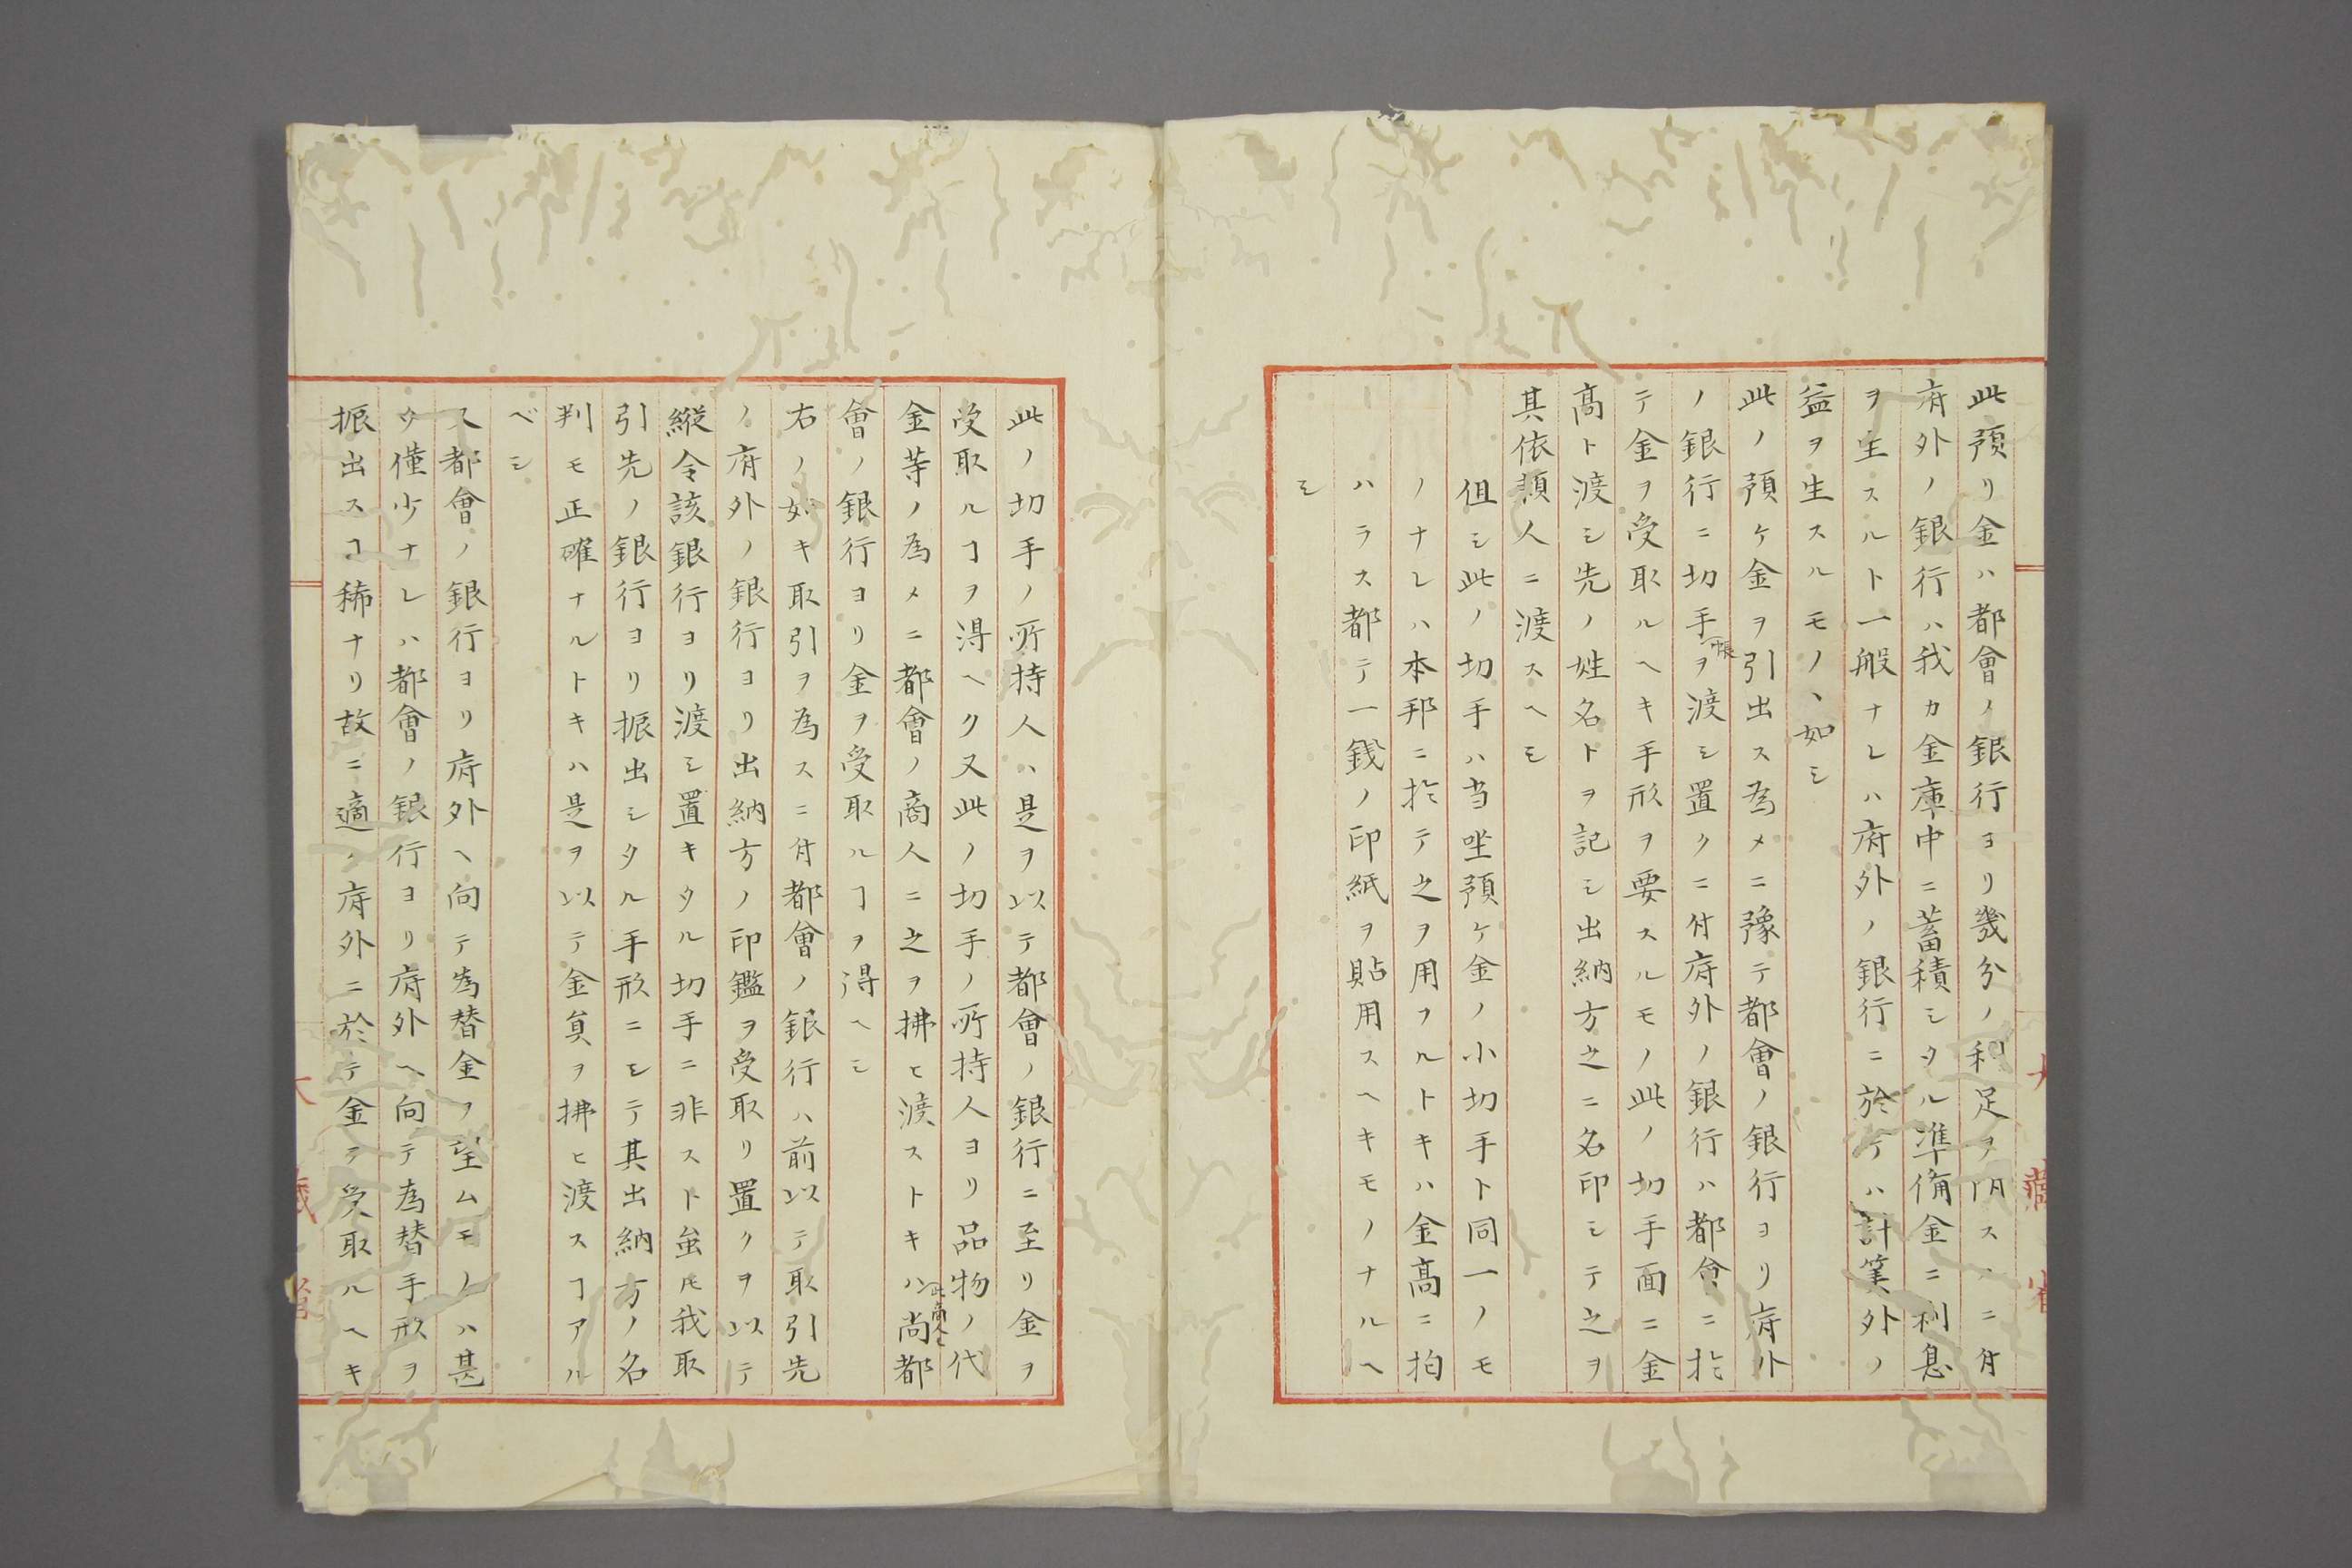 此預リ金ハ都會ノ銀行ヨリ幾分ノ利足ヲ附スルニ付
府外ノ銀行ハ我カ金庫中ニ蓄積シタル準備金ニ利息
ヲ生スルト一般ナレハ府外ノ銀行ニ於テハ計筭外ノ
益ヲ生スルモノヽ如シ
此ノ預ケ金ヲ引出ス為メニ豫テ都會ノ銀行ヨリ府外
ノ銀行ニ切手帳ヲ渡シ置クニ付府外ノ銀行ハ都會ニ於
テ金ヲ受取ルヘキ手形ヲ要スルモノ此ノ切手面ニ金
髙ト渡シ先ノ姓名トヲ記シ出納方之ニ名印シテ之ヲ
其依頼人ニ渡スヘシ
但シ此ノ切手ハ当坐預ケ金ノ小切手ト同一ノモ
ノナレハ本邦ニ於テ之ヲ用フルトキハ金髙ニ拘
ハラス都テ一銭ノ印紙ヲ貼用スヘキモノナルヘ
シ
大藏省
此ノ切手ノ所持人ハ是ヲ以テ都會ノ銀行ニ至リ金ヲ
受取ルヿヲ得ヘク又此ノ切手ノ所持人ヨリ品物ノ代
金等ノ為メニ都會ノ商人ニ之ヲ拂ヒ渡ストキハ此商人モ尚都
會ノ銀行ヨリ金ヲ受取ルヿヲ得ヘシ
右ノ如キ取引ヲ為スニ付都會ノ銀行ハ前以テ取引先
ノ府外ノ銀行ヨリ出納方ノ印鑑ヲ受取リ置クヲ以テ
縦令該銀行ヨリ渡シ置キタル切手ニ非スト虽𪜈我取
引先ノ銀行ヨリ振出シタル手形ニシテ其出納方ノ名
判モ正確ナルトキハ是ヲ以テ金員ヲ拂ヒ渡スヿアル
ベシ
又都會ノ銀行ヨリ府外ヘ向テ為替金ヲ望ムモノハ甚
タ僅少ナレハ都會ノ銀行ヨリ府外ヘ向テ為替手形ヲ
振出スヿ稀ナリ故ニ適ノ府外ニ於テ金ヲ受取ルヘキ
大藏省